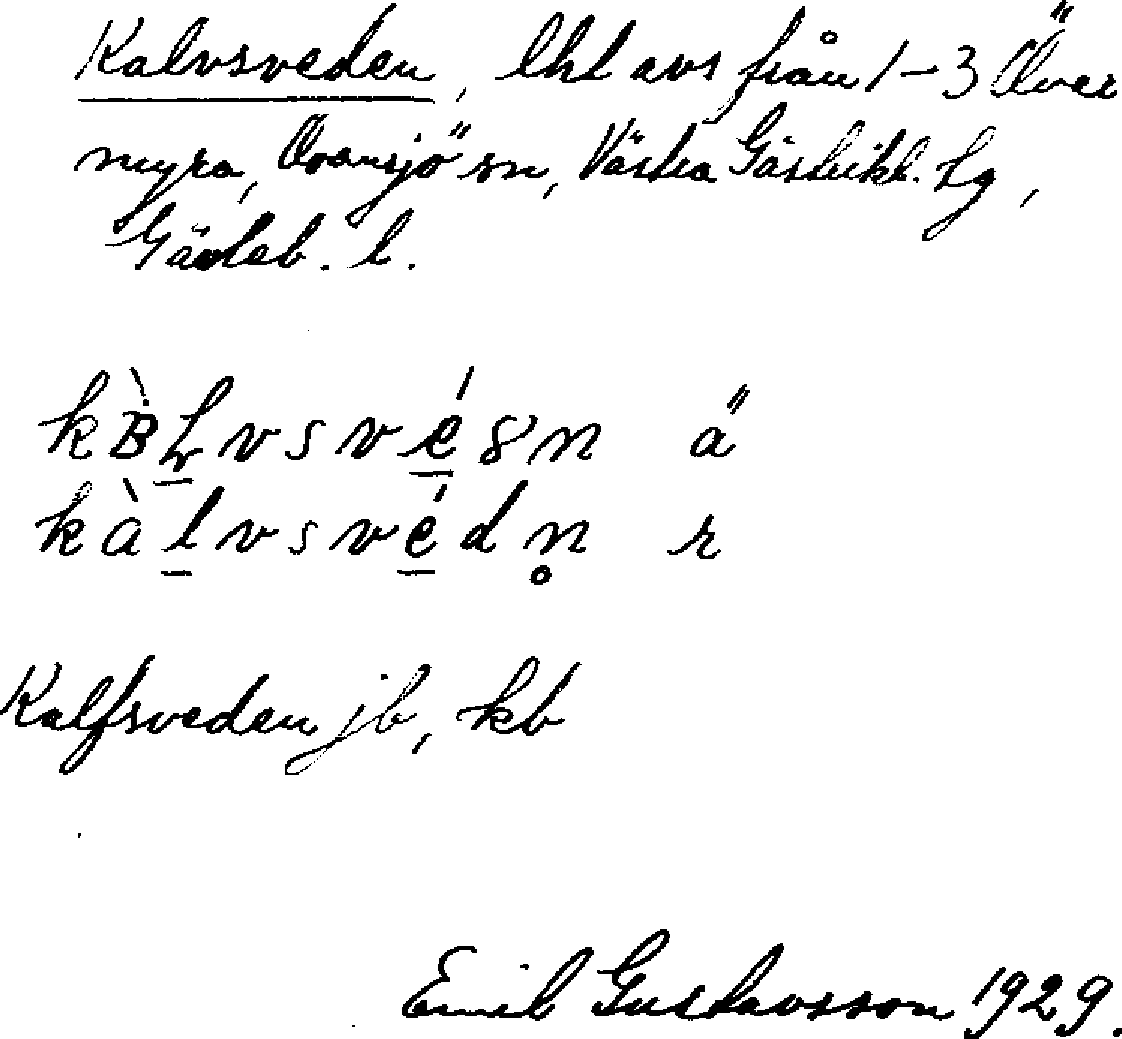 Kalvsveden, lht avs från 1-3 Över
myra, Ovansjö sn, Västra Gästrikl. tg,
Gävleb. l.
kàlvsvédn̥ r
Kalfsveden jb, kb
Emil Gustavsson 1929.